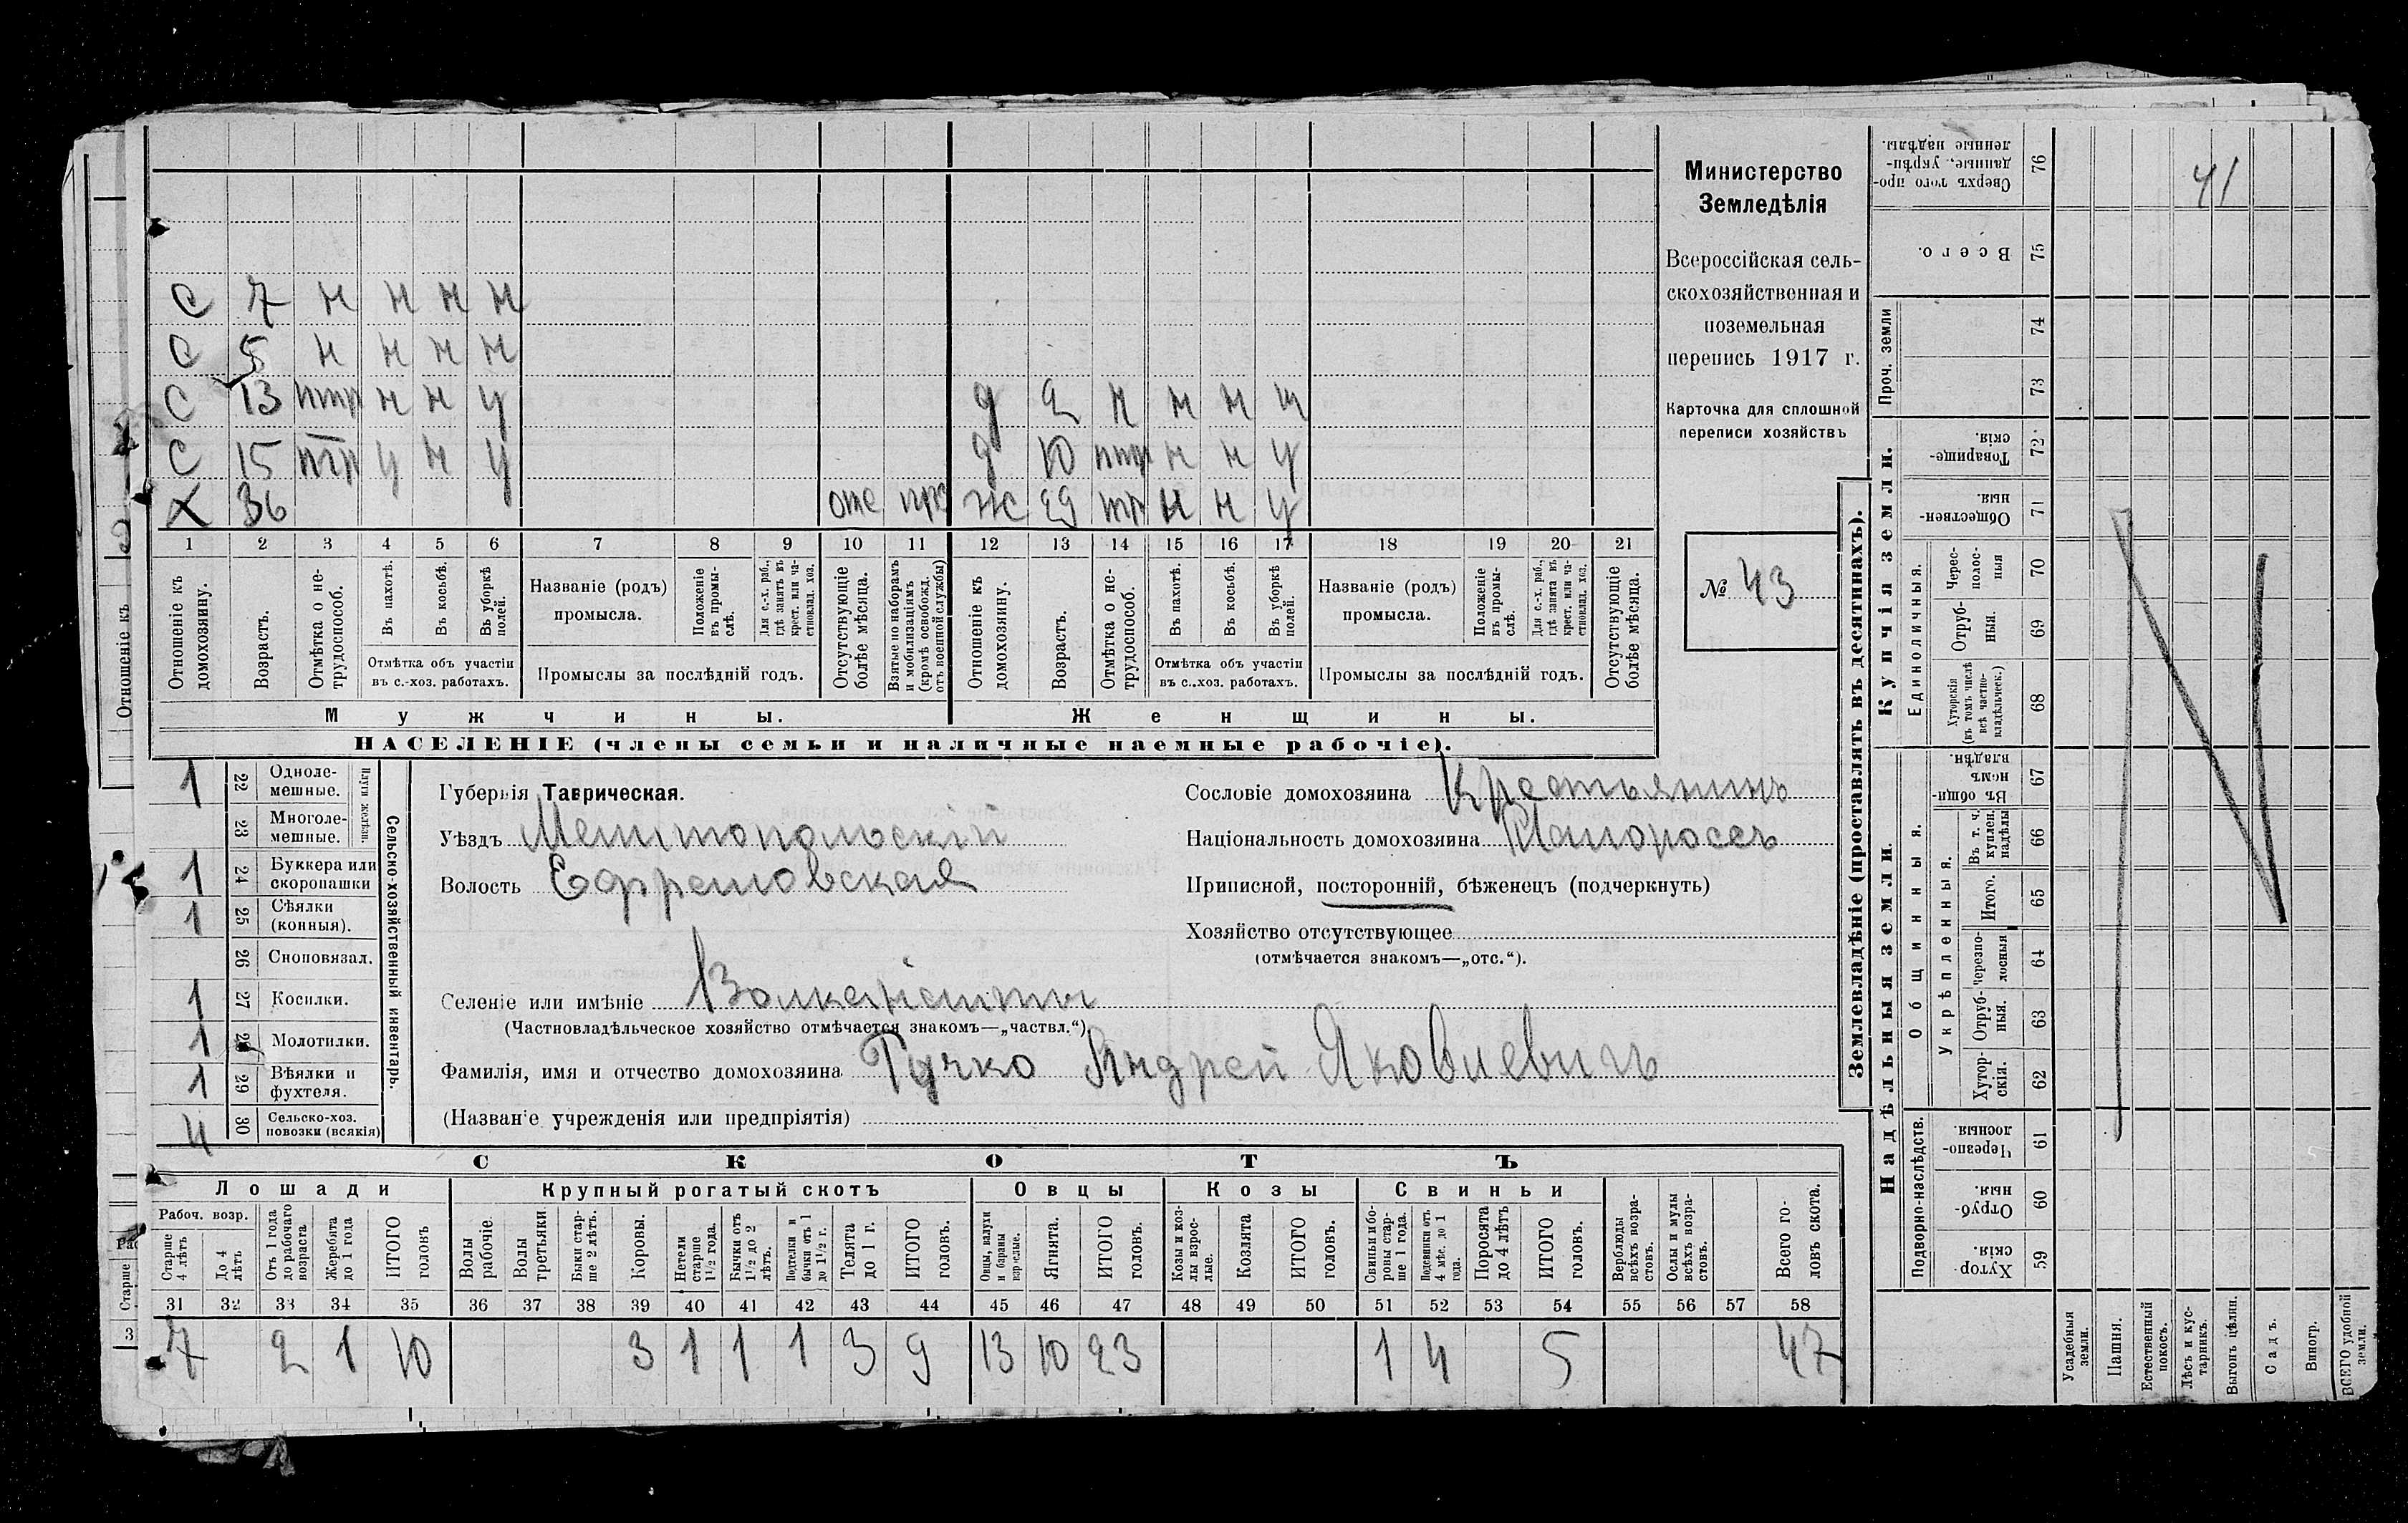 Министерство
Земледѣлія
Всероссійская сель-
скохозяйственная и
поземельная
перепись 1917 г.
Карточка для сплошной
переписи хозяйствъ
№ 43
С 7 н н н н
С 5 н н н н
С 13 птр н н у
д 2 н н н н
С 15 птр у н у
д 10 птр н н у
Х 36
отс
ж 29 тр н н у
1 2 3 4 5 6 7 8 9 10 11 12 13 14 15 16 17 18 19 20 21
Отношеніе къ домохозяину.
Возрастъ.
Отмѣтка о не-трудоспособ.
Въ пахотѣ.
Въ косьбѣ.
Въ уборкѣ полей.
Отмѣтка объ участіи
въ с.-хоз. работахъ.
Названіе (родъ)
промысла.
Положеніе въ промы-слѣ.
Для с.-х. раб., гдѣ занятъ въ крест. или ча-стновлад. хоз.
Промыслы за послѣдній годъ.
Отсутствующіе болѣе мѣсяца.
Взятые по наборамъ и мобилизаціямъ (кромѣ освобожд. отъ военной службы)
Отношеніе къ домохозяину.
Возрастъ.
Отмѣтка о не-трудоспособ.
Въ пахотѣ.
Въ косьбѣ.
Въ уборкѣ полей.
Отмѣтка объ участіи
въ с.-хоз. работахъ.
Названіе (родъ)
промысла.
Положеніе въ промы-слѣ.
Для с.-х. раб., гдѣ занята въ крест. или ча-стновлад. хоз.
Промыслы за послѣдній годъ.
Отсутствующіе болѣе мѣсяца.
Мужчины.
Женщины.
НАСЕЛЕНІЕ (члены семьи и наличные наемные рабочіе).
1 22 Одноле-мешные.
23 Многоле-мешные.
Плуги желѣзн.
1 24 Буккера или скоропашки
1 25 Сѣялки (конныя).
26 Сноповязал.
1 27 Косилки.
1 28 Молотилки.
1 29 Вѣялки и фухтеля.
4 30 Сельско-хоз. повозки (всякія)
Сельско-хозяйственный инвентарь.
Губернія Таврическая.
Уѣздъ Мелитопольскій
Волость Ефремовская
Сословіе домохозяина Крестьянинъ
Національность домохозяина Малороссъ
Приписной, посторонній, бѣженецъ (подчеркнуть)
Хозяйство отсутствующее
(отмѣчается знакомъ—„отс.“).
Селеніе или имѣніе
(Частновладѣльческое хозяйство отмѣчается знакомъ—„частвл.“)
Фамилія, имя и отчество домохозяина Гучко Андрей Яковлевичъ
(Названіе учрежденія или предпріятія)
СКОТЪ
Лошади
Крупный рогатый скотъ
Овцы
Козы
Свиньи
Рабоч. возр.
Старше 4 лѣтъ
До 4 лѣтъ
Отъ 1 года до рабочаго возраста
Жеребята до 1 года
ИТОГО головъ
Волы рабочіе.
Волы третьяки
Быки стар-ше 2 лѣтъ.
Коровы.
Нетели старше 1½ года.
Бычки отъ 1½ до 2 лѣтъ.
Подтелки и бычки отъ 1 до 1½ г.
Телята до 1 г.
ИТОГО головъ.
Овцы, валухи и бараны взрослые.
Ягнята.
ИТОГО головъ.
Козы и коз-лы взрос-лые.
Козлята
ИТОГО головъ.
Свиньи и бо-ровы стар-ше 1 года.
Подсвинки отъ 4 мѣс. до 1 года.
Поросята до 4 лѣтъ
ИТОГО головъ.
Верблюды всѣхъ возра-стовъ.
Ослы и мулы всѣхъ возра-стовъ.
Всего го-ловъ скота.
31 32 33 34 35 36 37 38 39 40 41 42 43 44 45 46 47 48 49 50 51 52 53 54 55 56 57 58
7 2 1 10 3 1 1 1 3 9 13 10 23 1 4 5 47
Землевладѣніе (проставлять въ десятинахъ).
Надѣльныя земли.
Купчія земли.
Проч. земли
Подворно-наслѣдств.
Общинныя.
Укрѣпленныя.
Единоличныя.
Сверхъ того про-данные, укрѣп-ленные надѣлы. 76
41
Всего. 75
74
73
Товарище-скія. 72
Обществен-ныя. 71
Черес-полос-ныя 70
Отруб-ныя. 69
Хуторскія (въ томъ числѣ всѣ частно-владѣльческ.) 68
Въ общин-номъ владѣн. 67
Въ т. ч. куплен. надѣлы 66
Итого. 65
Черезпо-лосныя 64
Отруб-ныя. 63
Хутор-скія. 62
Черезпо-лосныя. 61
Отруб-ныя. 60
Хутор-скія. 59
Усадебныя земли.
Пашня.
Естественный покосъ.
Лѣсъ и кус-тарникъ.
Выгонъ цѣлин.
Садъ.
Виногр.
ВСЕГО удобной земли.
Отношеніе къ
Старше
3